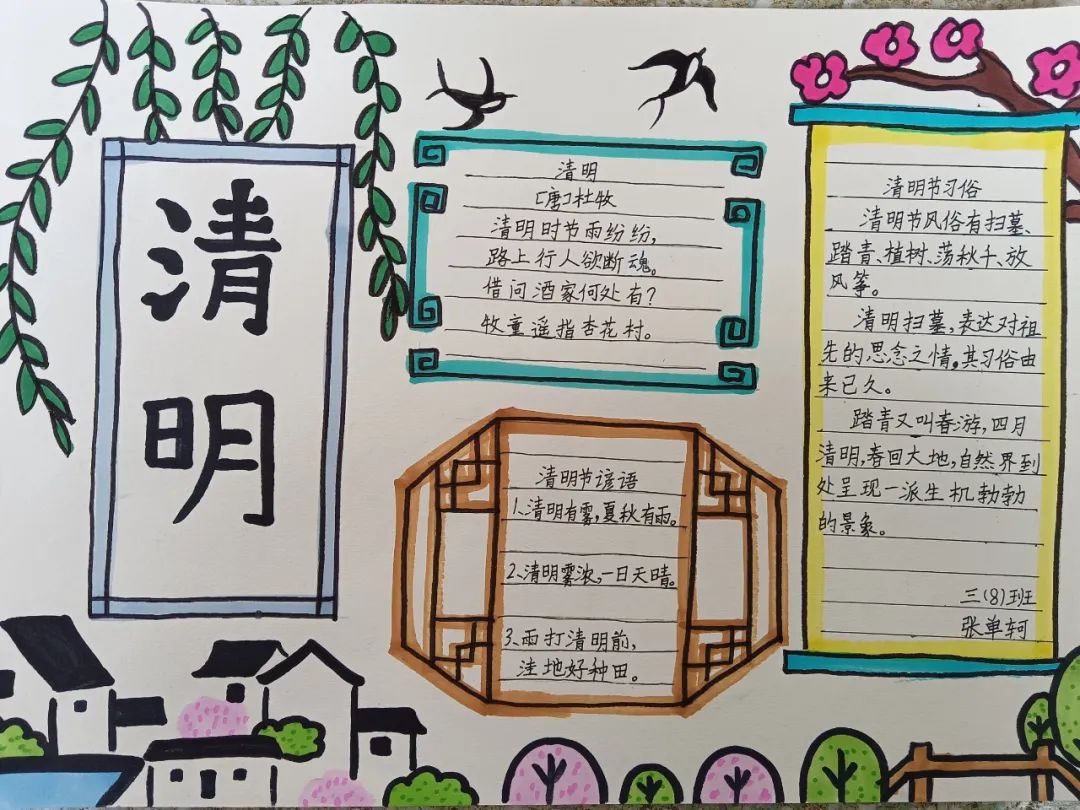 清
明
清明
[唐]杜牧
清明时节雨纷纷,
路上行人欲断魂。
借问酒家何处有?
牧童遥指杏花村。
清明节谚语
1、清明有雾,夏秋有雨。
2、清明雾浓,一日天晴。
3、雨打清明前,
洼地好种田。
清明节习俗
清明节风俗有扫墓、
踏青、植树、荡秋千、放
风筝。
清明扫墓,表达对祖
先的思念之情,其习俗由
来已久。
踏青又叫春游,四月
清明,春回大地,自然界到
处呈现一派生机勃勃
的景象。
三(8)班
张单轲